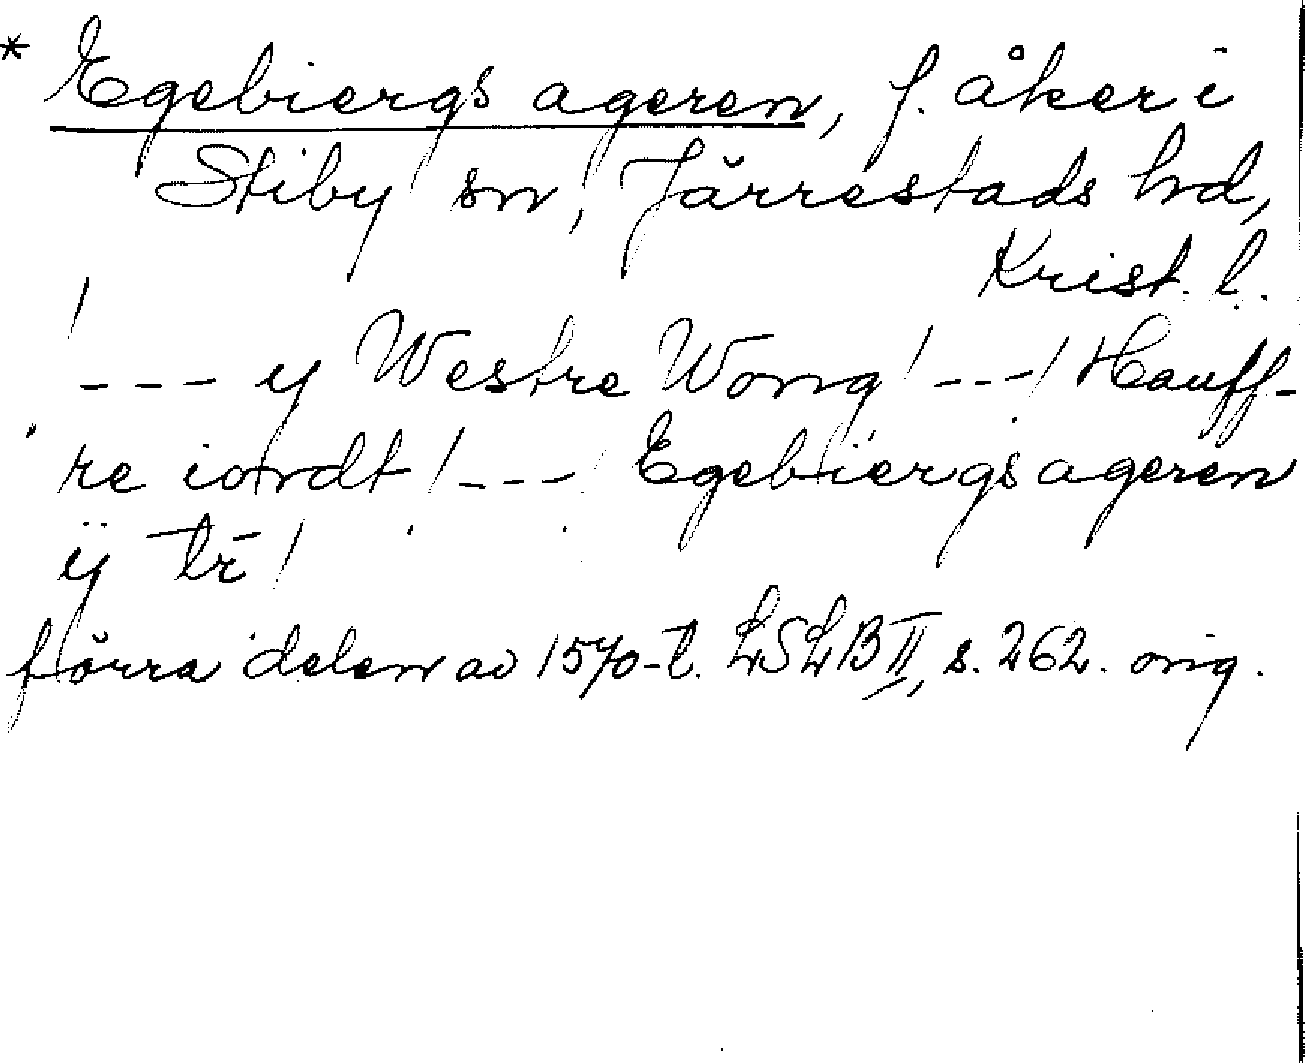 * Egebiergs ageren, f. åker i
Stiby sn, Järrestads hd,
Krist. l.
/--- y Westre Wong /---/ Hauff-
re iordt /---/ Egebiergs ageren
ÿ tr̄ /
förra delen av 1570-t. LSLB II, s. 262. orig.